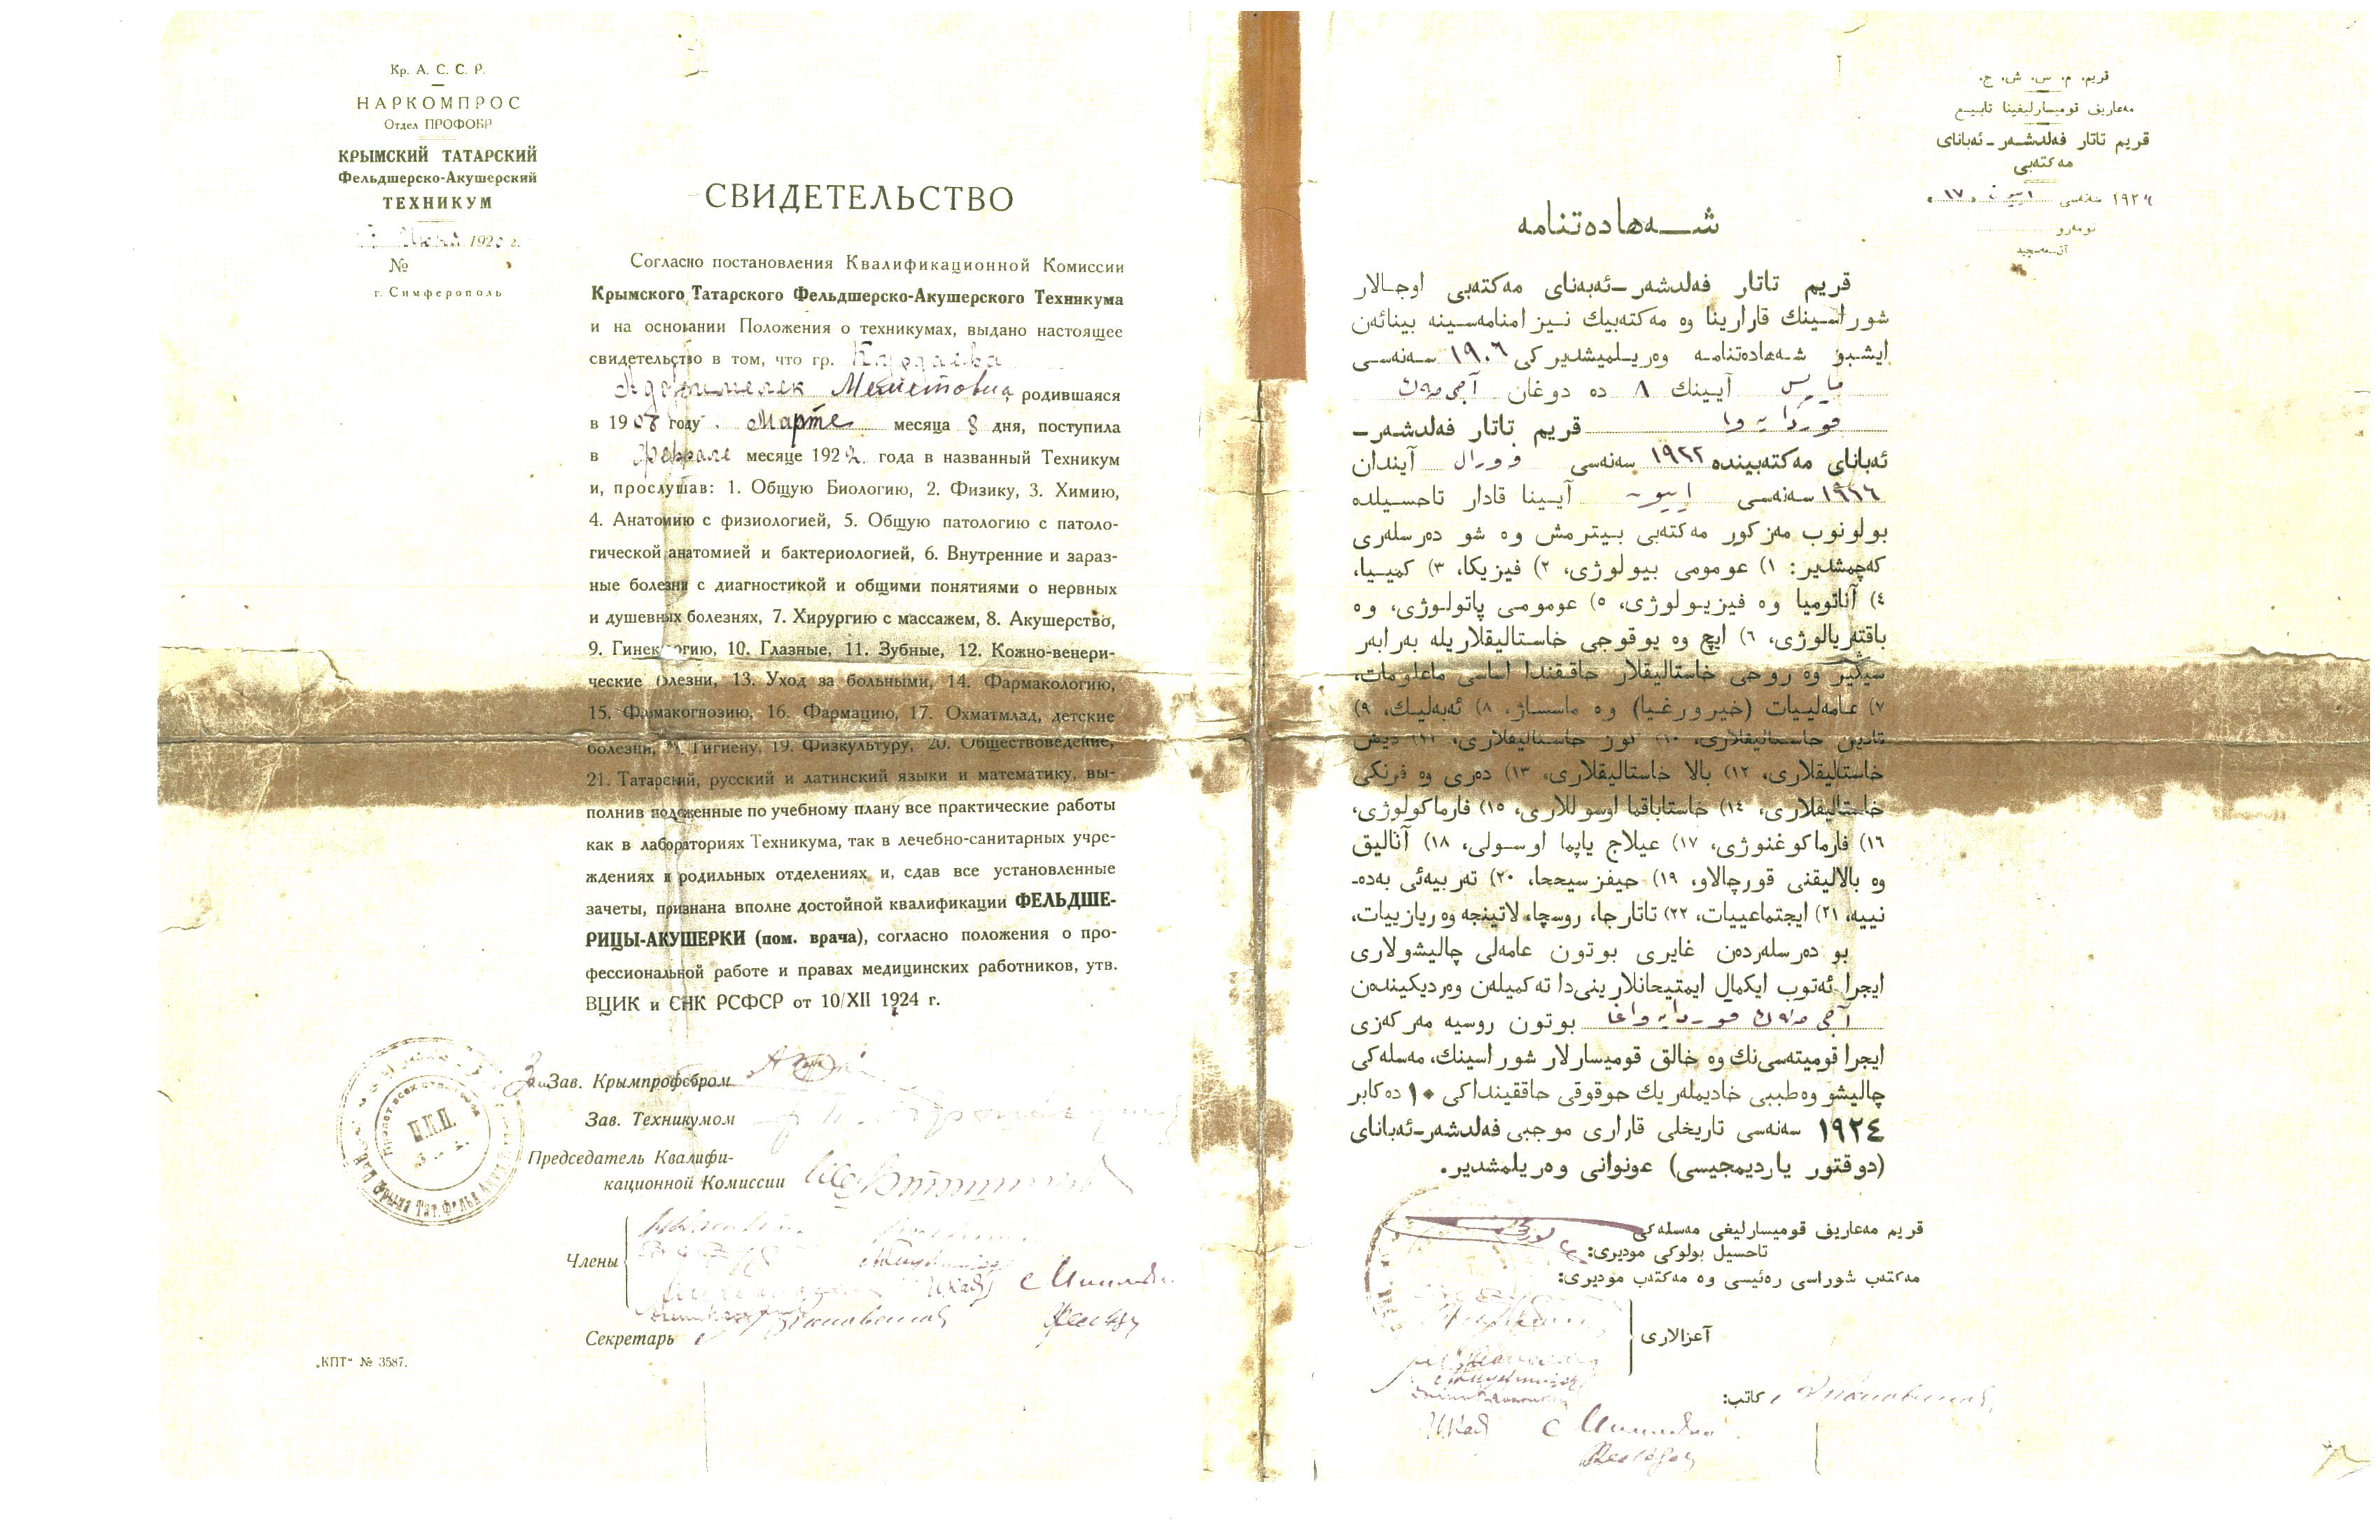 Кр. А. С. С. Р.
НАРКОМПРОС
Отдел ПРОФОБР
КРЫМСКИЙ ТАТАРСКИЙ
Фельдшерско-Акушерский
ТЕХНИКУМ
192 г.
№
г. Симферополь
СВИДЕТЕЛЬСТВО
Согласно постановления Квалификационной Комиссии
Крымского Татарского Фельдшерско-Акушерского Техникума
и на основании Положения о техникумах, выдано настоящее
свидетельство в том, что гр.
родившаяся
в 1908 году Марте месяца 8 дня, поступила
в Феврале месяце 1922 года в названный Техникум
и, прослушав: 1. Общую Биологию, 2. Физику, 3. Химию,
4. Анатомию с физиологией, 5. Общую патологию с патоло-
гической анатомией и бактериологией, 6. Внутренние и зараз-
ные болезни с диагностикой и общими понятиями о нервных
и душевных болезнях, 7. Хирургию с массажем, 8. Акушерство,
9. Гинекологию, 10. Глазные, 11. Зубные, 12. Кожно-венери-
ческие болезни, 13. Уход за больными, 14. Фармакологию,
15. Фармакогнозию, 16. Фармацию, 17. Охматмлад, детские
болезни, Гигиену, 19. Физкультуру, 20. Обществоведение,
21. Татарский, русский и латинский языки и математику, вы-
полнив положенные по учебному плану все практические работы
как в лабораториях Техникума, так в лечебно-санитарных учре-
ждениях и родильных отделениях и, сдав все установленные
зачеты, признана вполне достойной квалификации ФЕЛЬДШЕ-
РИЦЫ-АКУШЕРКИ (пом. врача), согласно положения о про-
фессиональной работе и правах медицинских работников, утв.
ВЦИК и СНК РСФСР от 10/XII 1924 г.
Зав. Крымпрофобром
Зав. Техникумом
Председатель Квалифи-
кационной Комиссии
Члены
Секретарь
„КПТ“ № 3587.
قريم. م. س. ش. ج.
مەعاريف قوميسارليغينا تابيع
قريم تاتار فەلدشەر ـ ئەبانای
مەكتەبی
١٩٢٦ سەنەسی ١٧
نومەرو
آقمەسجيد
شەهادەتنامە
قريم تاتار فەلدشەر ـ ئەبەنای مەكتەبی اوجالار
شوراسينك قارارينا وە مەكتەبيك نيزامنامەسينە بينائەن
ايشبو شەهادەتنامە وەريلميشدير كی ١٩٠٦ سەنەسی
مارس آيينك ٨ دە دوغان
قريم تاتار فەلدشەر ـ
ئەبانای مەكتەبيندە ١٩٢٢ سەنەسی فورال آيندان
١٩٢٦ سەنەسی آيينا قادار تاحسيلدە
بولونوب مەزكور مەكتەبی بيترمش وە شو دەرسلەری
كەچمشدير: ١) عومومی بيولوژی، ٢) فيزيكا، ٣) كميیا،
٤) آناتوميا وە فيزيولوژی، ٥) عومومی پاتولوژی، وە
باقتەريالوژی، ٦) ايچ وە يوقوجی خاستاليقلاريلە بەرابەر
سيڭير وە روحی خاستاليقلار حاققندا اساسی ماعلومات،
٧) عامەلييات (خيرورغيا) وە ماسساژ، ٨) ئەبەليك، ٩)
قادين خاستاليقلاری، ١٠) كوز خاستاليقلاری، ١١) ديش
خاستاليقلاری، ١٢) بالا خاستاليقلاری، ١٣) دەری وە فرنكی
خاستاليقلاری، ١٤) خاستاباقما اوسوللاری، ١٥) فارماكولوژی،
١٦) فارماكوغنوژی، ١٧) عيلاج ياپما اوسولی، ١٨) آناليق
وە بالاليقنی قورچالاو، ١٩) حيفزسيححا، ٢٠) تەربيەئی بەدە-
نييە، ٢١) ايجتماعييات، ٢٢) تاتارجا، روسچا، لاتينجە وە ريازييات،
بو دەرسلەردەن غايری بوتون عامەلی چاليشولاری
ايجرا ئەتوب ايكمال ايمتيحانلارينی دا تەكميلەن وەرديكيندەن
بوتون روسيە مەركەزی
ايجرا قوميتەسی نك وە خالق قوميسارلار شوراسينك، مەسلەكی
چاليشو وە طببی خاديملەريك حوقوقی حاققينداكی ١٠ دەكابر
١٩٢٤ سەنەسی تاريخلی قاراری موجبی فەلدشەر ـ ئەبانای
(دوقتور يارديمجيسی) عونوانی وەريلمشدير.
قريم مەعاريف قوميسارليغی مەسلەكی
تاحسيل بولوكی موديری:
مەكتەب شوراسی رەئيسی وە مەكتەب موديری:
آعزالاری
كاتب: